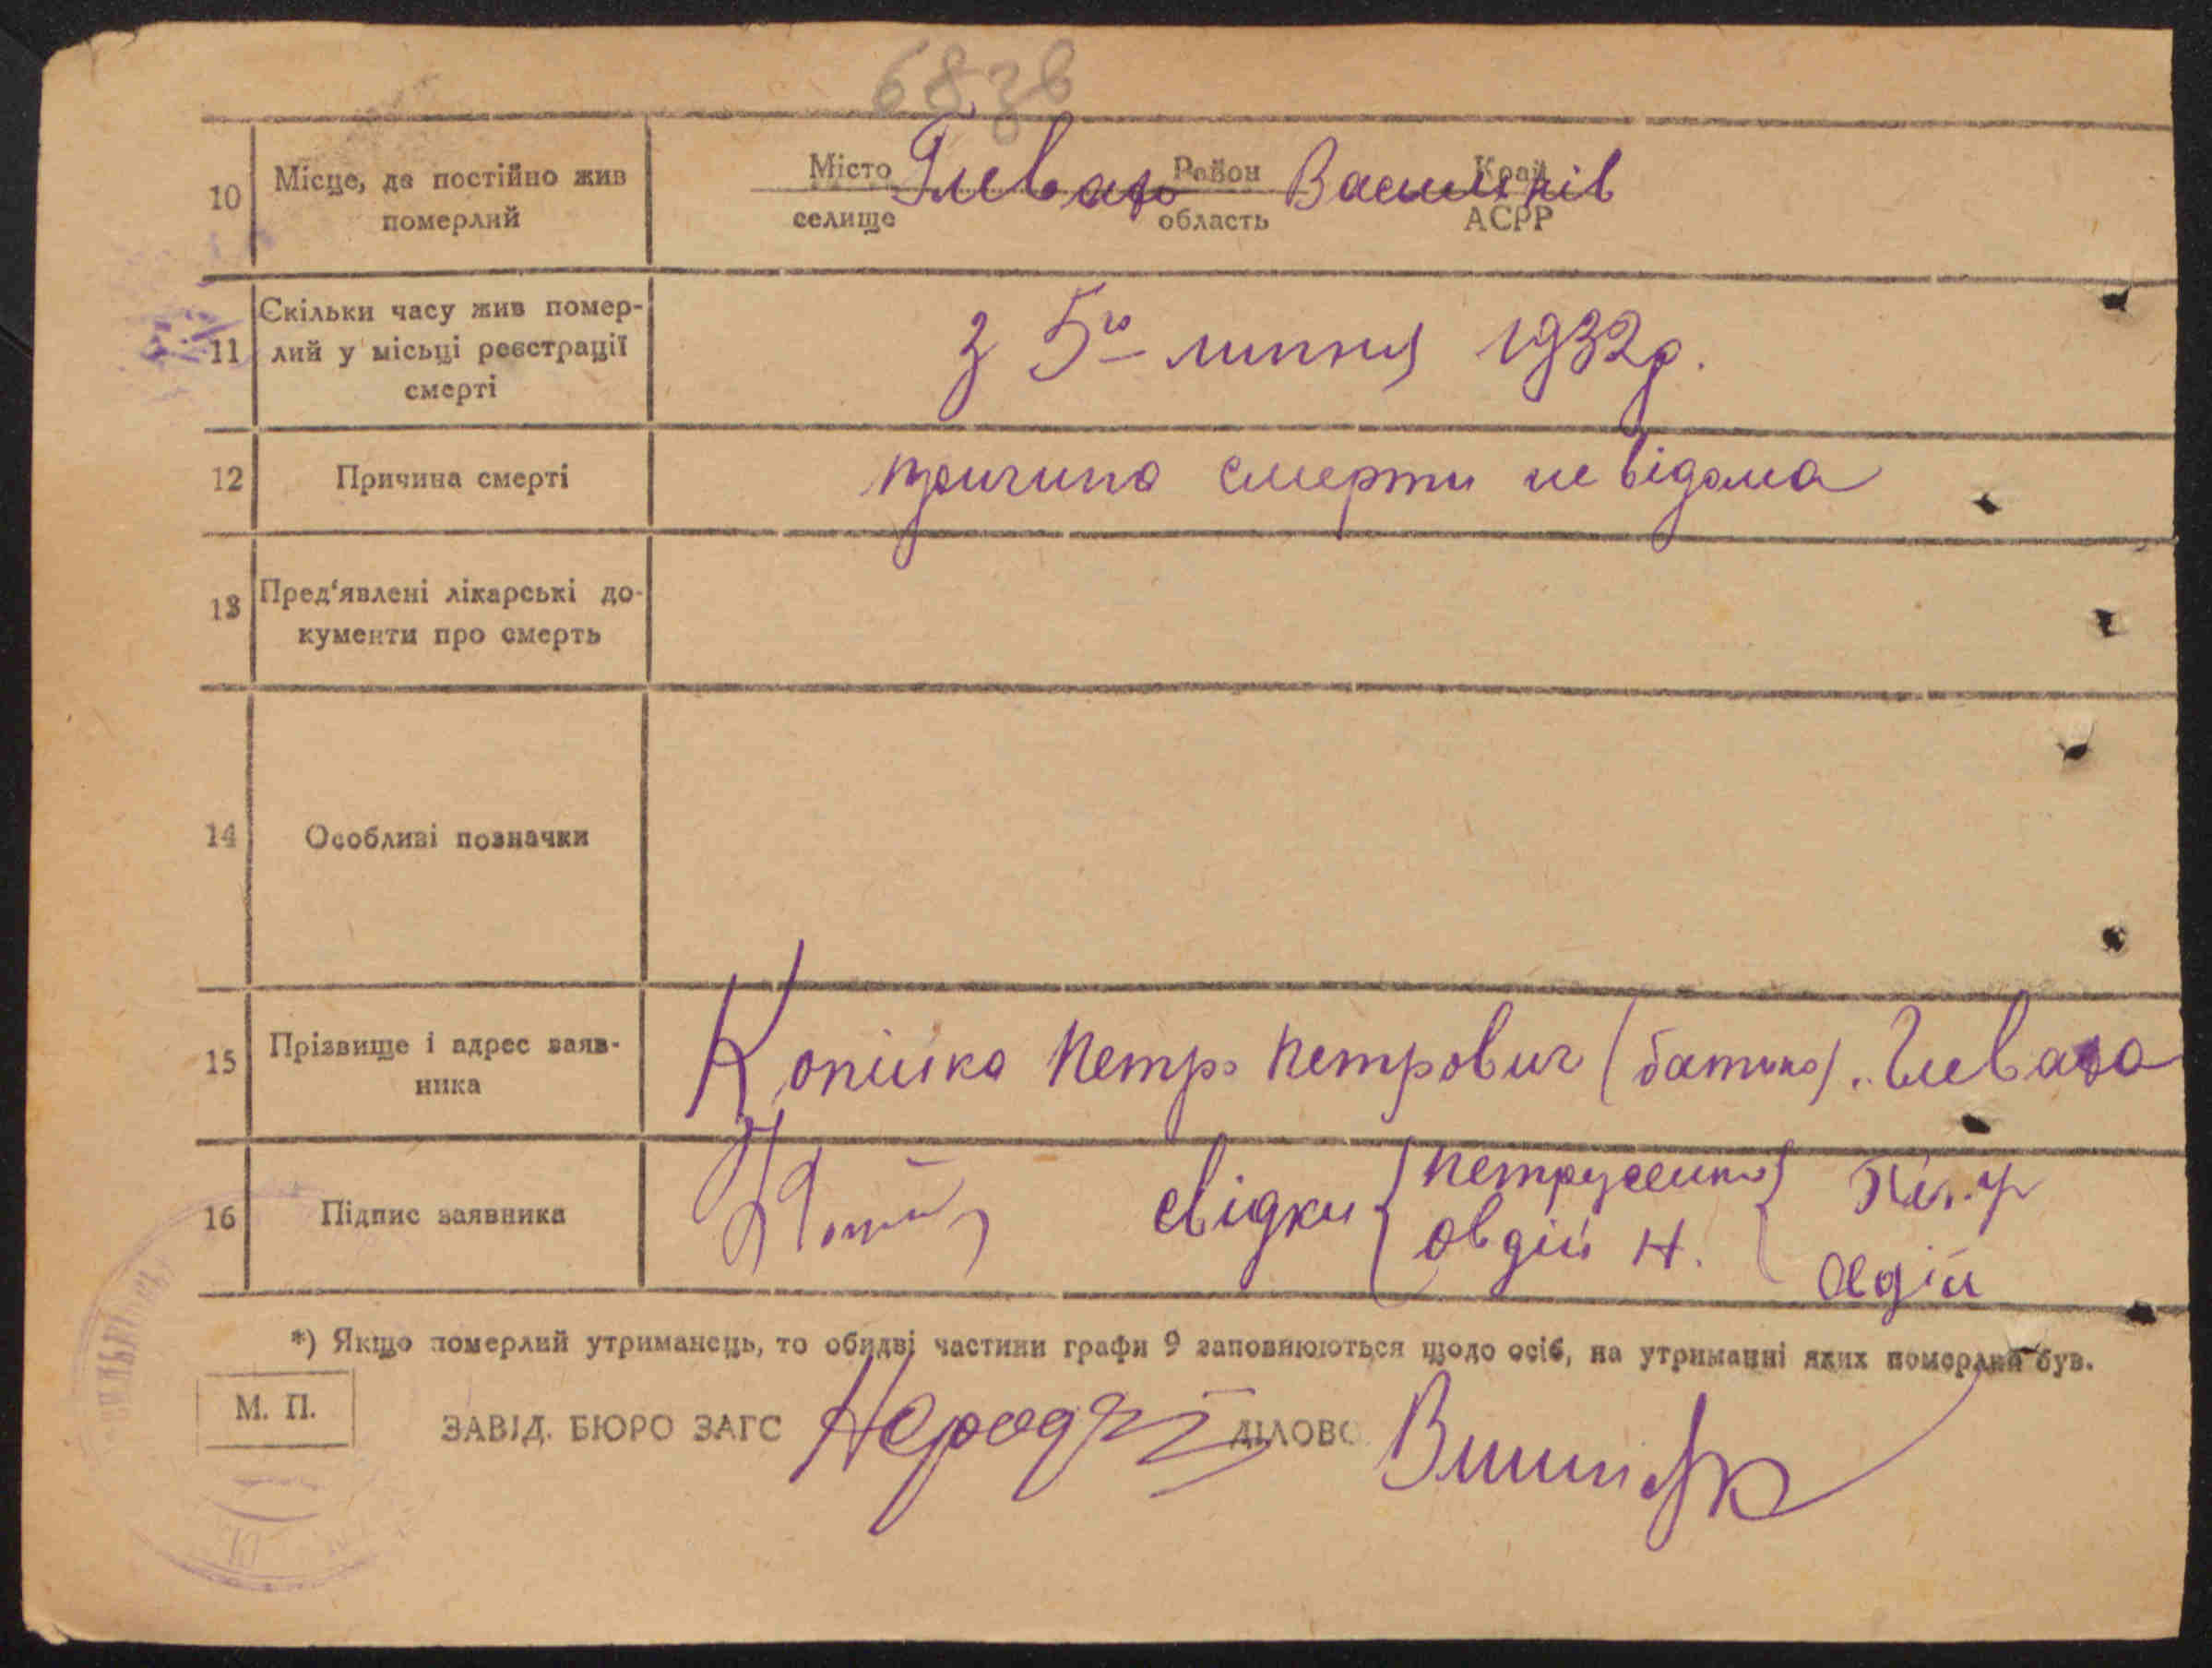 10 Місце, де постійно жив
померлий
Місто Глеваха Район Васильків Край
селище область АСРР
11 Скільки часу жив помер-
лий у місьці реєстрації
смерті
з 5го липня 1932р.
12 Причина смерті
причина смерти не відома
13 Пред'явлені лікарські до-
кументи про смерть
14 Особливі позначки
15 Прізвище і адрес заяв-
ника
Копійка Петро Петрович (батько)
16 Підпис заявника
свідки Петрусенко
Овдій Н.
Овдій
*) Якщо померлий утриманець, то обидві частини графи 9 заповнюються щодо осіб, на утриманні яких померлий був.
М. П.
ЗАВІД. БЮРО ЗАГС ДІЛОВО